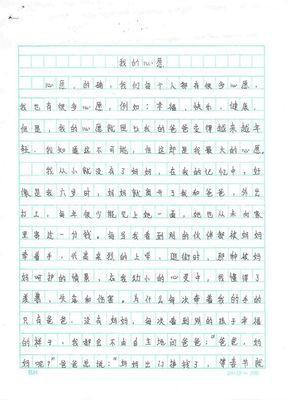 我的心愿
心愿，的确，我们每个人都有很多心愿，
我也有很多心愿，例如：幸福，快乐，健康，
但是，我的心愿就是让我的爸爸变得越来越年
轻。我知道这不可能，但这却是我最大的心愿。
我从小就没有了妈妈，在我的记忆中，好
像是我六岁时，妈妈就离开了我和爸爸，外出
打工，每年很少能见上她一面，她也从未向家
里寄过一分钱。每当我看到别的伙伴都被妈妈
牵着手，我高采烈的上学、逛街时，那种被妈
妈呵护的情景，在我幼小的心灵中，我懂得了
羡慕、失落和伤害。为什么每次牵着我的手的
只有爸爸，没有妈妈，每次看到别的孩子幸福
的样子，我都自不由自主地问爸爸："爸爸，妈
妈呢？"爸爸总说："妈妈出门挣钱了，等春节就